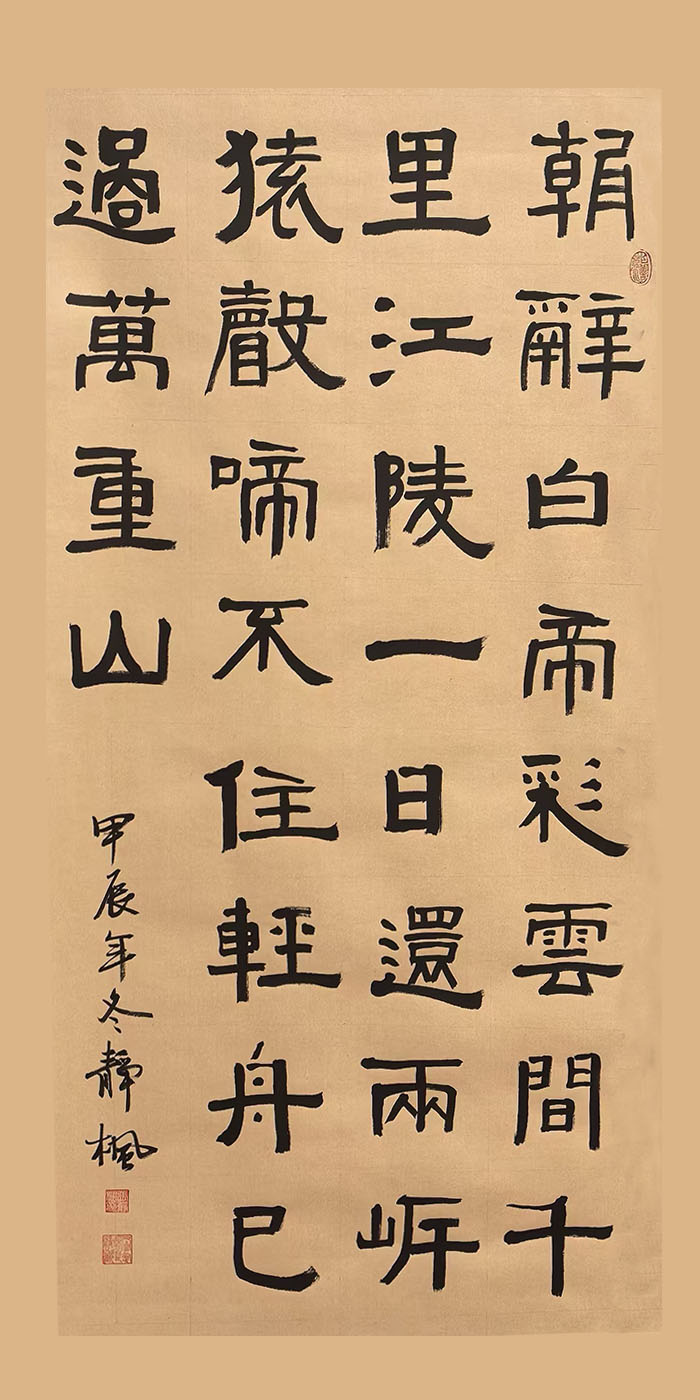 朝辭白帝彩雲間千
里江陵一日還兩岸
猿聲啼不住輕舟已
過萬重山
甲辰年冬靜楓